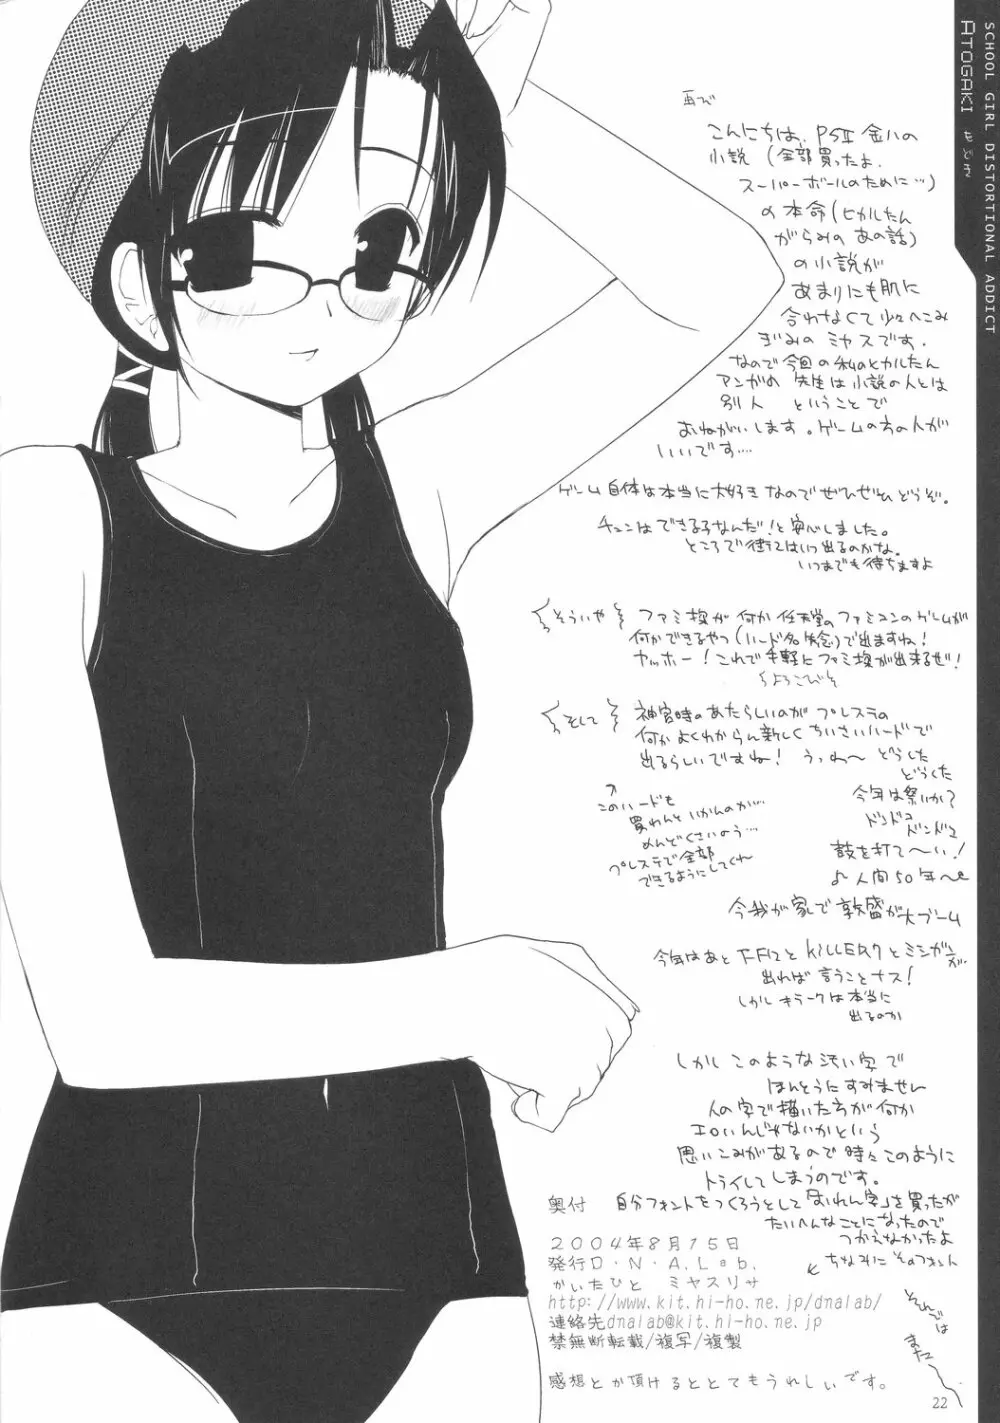 SCHOOL GIRL DISTORTIONAL ADDICT
ATOGAKI
再び
こんにちは、PSⅡ 金八の
小説 (全部買ったよ、
スーパーボールのために…)
の本命(ヒカルたん
がらみの あの話)
の小説が
あまりにも肌に
合わなくて 少々へこみ
ぎみの ミヤスです。
なので今回の私のヒカルたん
アンがめ 先生は小説の人とは
別人 ということで
おねがいします。ゲームの方の人が
いいです‥‥
ゲーム自体は本当に大好きなのでぜひぜひどうぞ。
チュンはできる子なんだ!と安心しました。
ところで はいつ出るのかな。
いつまでも待ちますよ
そういや ファミ探が 何か任天堂のファミコンのゲームが
何かできるやつ(ハード名失念)で出ますね!
ヤッホー!これで手軽にファミ探が出来るぜ!
よろこび
そして 神宮時のあたらしいのが プレステの
何かよくわからん新しくちいさいハードで
出るらしいですね! うっわ〜 どうした
どうした
今年は祭いか?
ドンドコ
ドンドコ
鼓を打て〜い!
♪人間50年〜
このハードも
買わんといかんのか…
めんどくさいのよう…
プレステで全部
できるようにしてくれ
今我が家で敦盛が大ブーム
今年はあと FF12と KILLER7と ミシガンが
出れば言うことナス!
しかし キラー7は本当に
出るのか
しかしこのような汚い字で
ほんとうにすみません
人の字で描いた方が何か
エロいんじゃないかという
思いこみがあるので時々このように
トライしてしまうのです。
自分フォントをつくろうとして「おれん字」を買ったが
たいへんなことになったので
つかえなかったよ
ちなみに そのフォント
奥付
2004年8月15日
発行D・N・A.Lab.
かいたひと ミヤスリサ
http://www.kit.hi-ho.ne.jp/dnalab/
連絡先dnalab@kit.hi-ho.ne.jp
禁無断転載/複写/複製
感想とか頂けるととてもうれしいです。
それでは
また〜
22